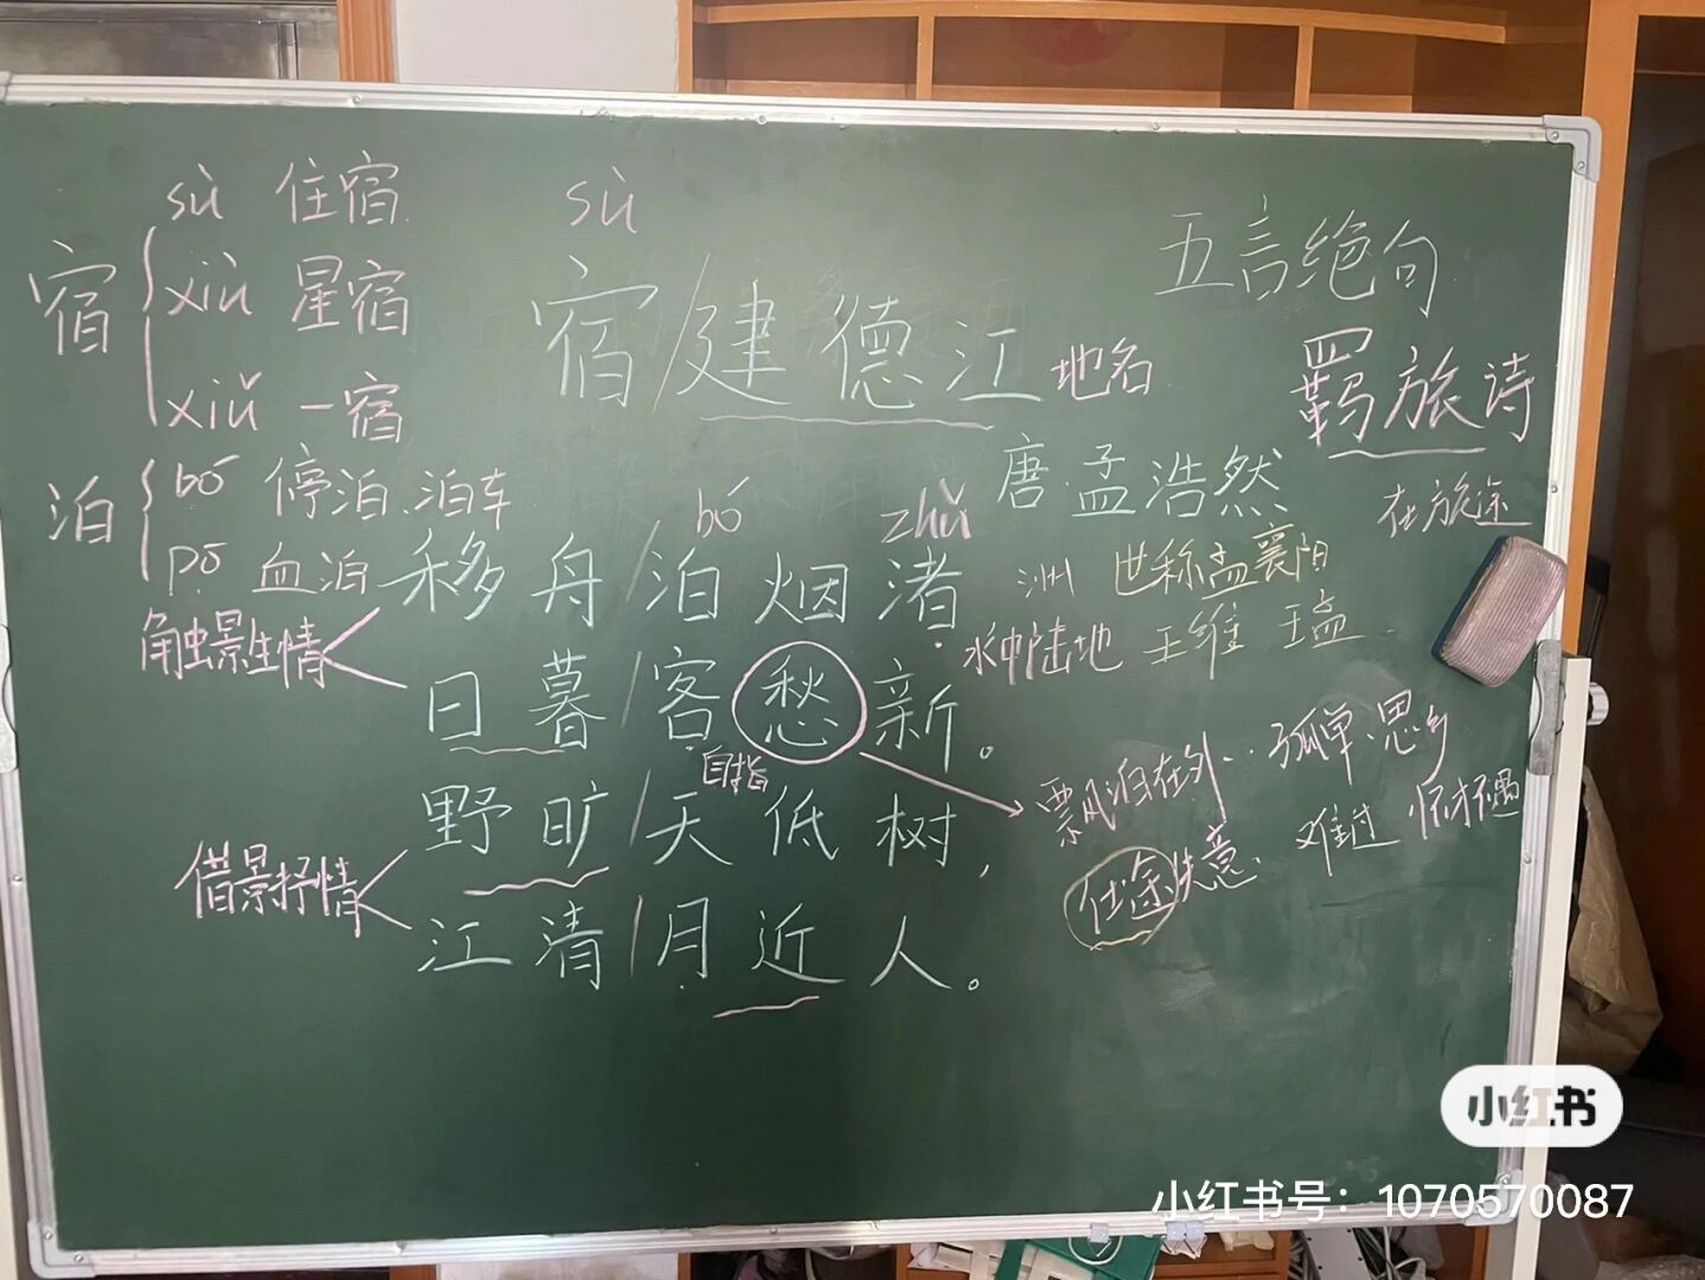 宿
sù 住宿
xiù 星宿
xiǔ 一宿
泊
bó 停泊、泊车
pō 血泊
sù
宿/建德江 地名
五言绝句
羁旅诗
在旅途
唐·孟浩然
世称孟襄阳
王维 王孟
bó zhǔ
移舟/泊烟渚
洲
水中陆地
触景生情
日暮/客愁新。
自指
飘泊在外.. 孤单、思乡
仕途失意. 难过 怀才不遇
野旷/天低树,
借景抒情
江清/月近人。
小红书
小红书号：1070570087